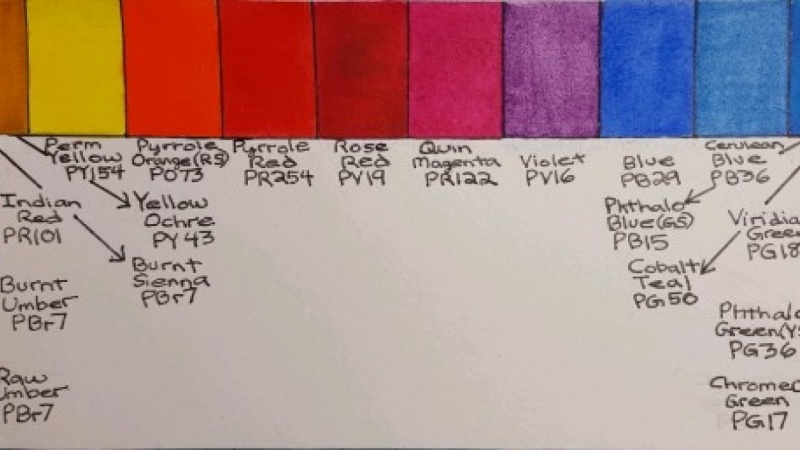 Perm
Yellow
PY154
Pyrrole
Orange(RS)
PO73
Pyrrole
Red
PR254
Rose
Red
PV19
Quin
Magenta
PR122
Violet
PV16
Blue
PB29
Cerulean
Blue
PB36
Indian
Red
PR101
Yellow
Ochre
PY43
Phthalo
Blue(GS)
PB15
Viridian
Green
PG18
Burnt
Umber
PBr7
Burnt
Sienna
PBr7
Cobalt
Teal
PG50
Phthalo
Green(YS
PG36
Raw
Umber
PBr7
Chrome
Green
PG17